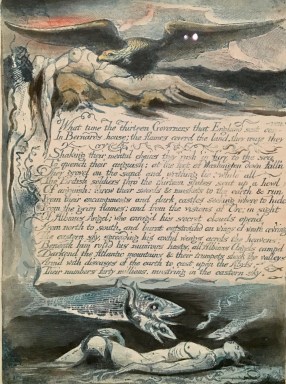 What time the thirteen Governors that England sent con-
In Bernards house; the flames coverd the land, they rouze they
Shaking their mental chains they rush in fury to the sea
To quench their anguish; at the feet of Washington down falln
They grovel on the sand and writhing lie, while all
The British soldiers thro the thirteen states sent up a howl
Of anguish: threw their swords & muskets to the earth & ran
From their encampments and dark castles seeking where to hide
From the grim flames; and from the visions of Orc; in sight
Of Albions Angel; who enragd his secret clouds open'd
From north to south, and burnt outstretchd on wings of wrath covring
The eastern sky, spreading his awful wings across the heavens;
Beneath him rolld his numrous hosts, all Albions Angels campd
Darkend the Atlantic mountains & their trumpets shook the valleys
Armd with diseases of the earth to cast upon the Abyss,
Their numbers forty millions, mustring in the eastern sky.